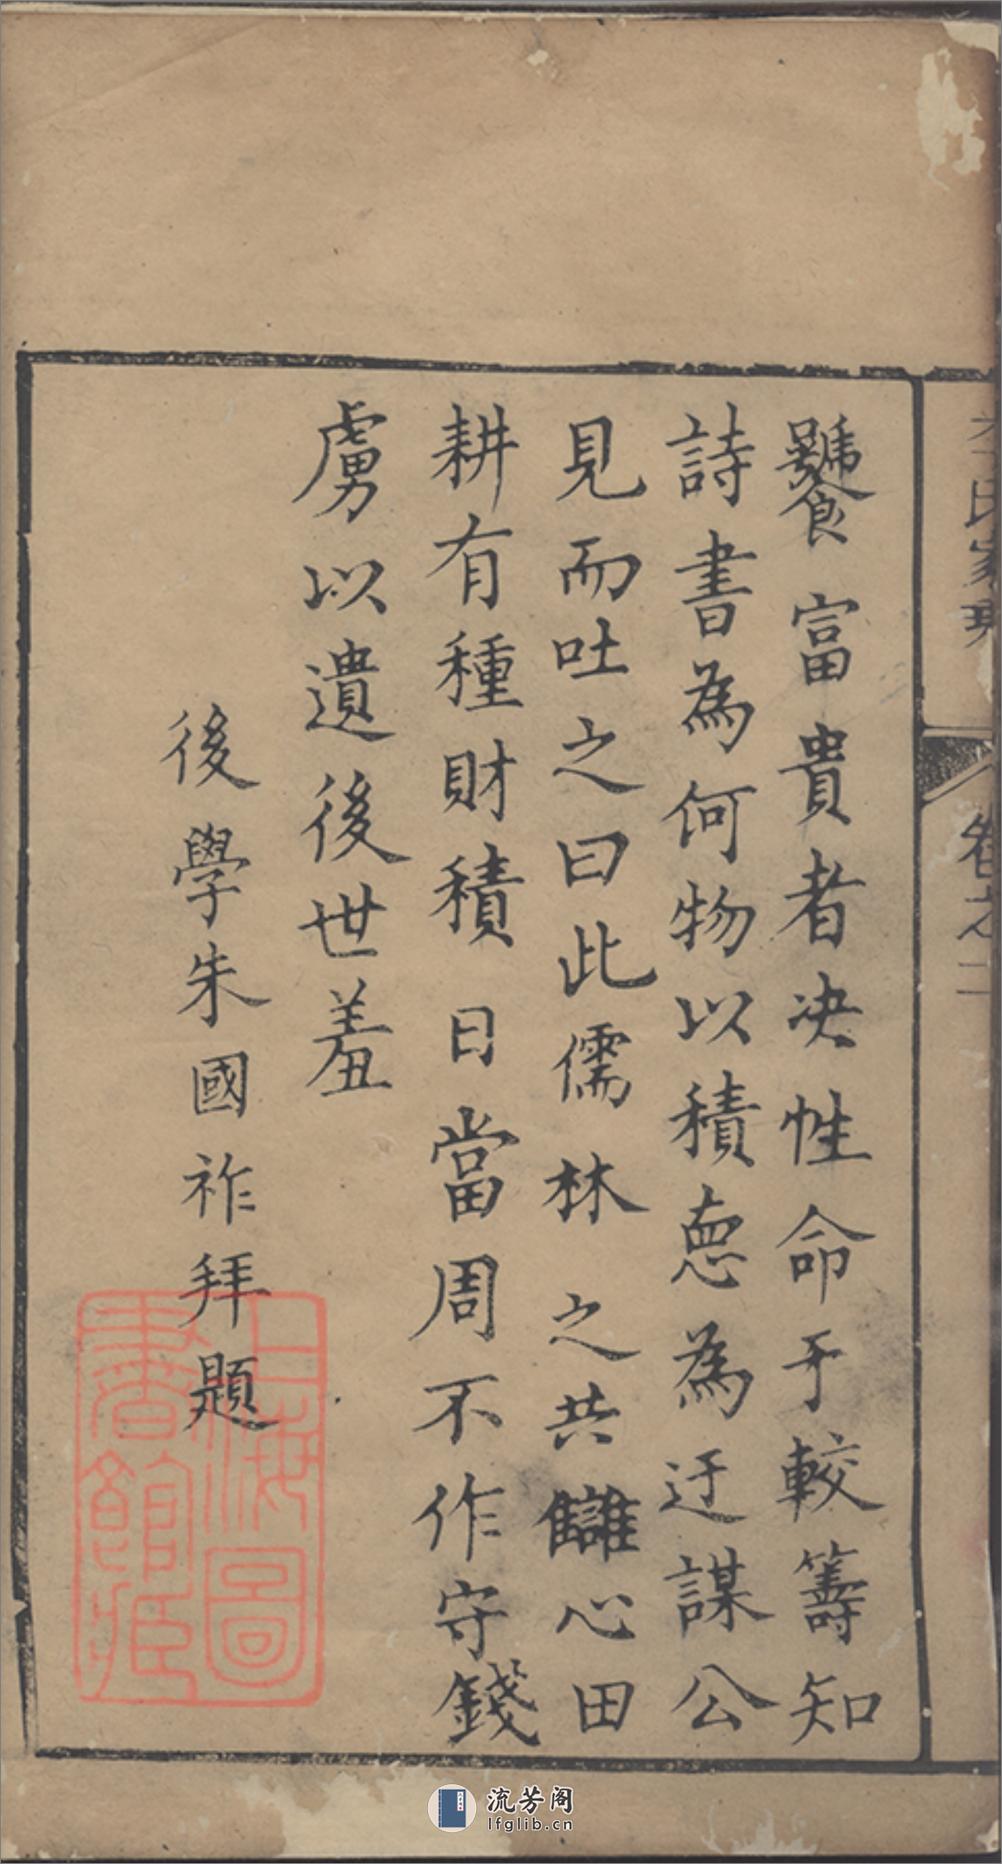 氏家乘
卷之二
饕富貴者决性命于較籌知
詩書為何物以積悳為迂謀公
見而吐之曰此儒林之共讎心田
耕有種財積日當周不作守錢
虜以遺後世羞
後學朱國祚拜題
上海圖
書館藏
流芳阁
lfglib.cn